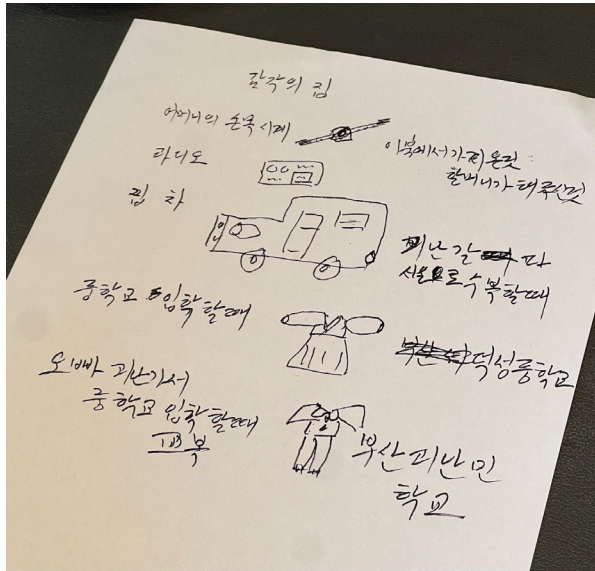 감각의 집
어머니의 손목시계
이북에서 가지 온것
할머니가 태
라디오
찝 차
피난 갈 따
서울로 수복할때
중학교 입학할때
덕성중학교
오빠 피난가서
중학교 입학할때
교복
부산피난민
학교